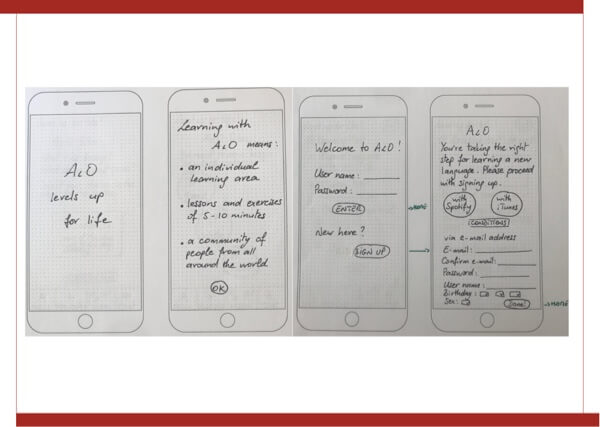 A&O
levels up
for life
Learning with
A&O means:
• an individual
learning area
• lessons and exercises
of 5-10 minutes
• a community of
people from all
around the world
OK
Welcome to A&O!
User name:
Password:
ENTER
→HOME
New here?
SIGN UP
A&O
You're taking the right
step for learning a new
language. Please proceed
with signing up.
with Spotify
with iTunes
CONDITIONS
via e-mail address
E-mail:
Confirm e-mail:
Password:
User name:
Birthday:
Sex:
Done!
→HOME